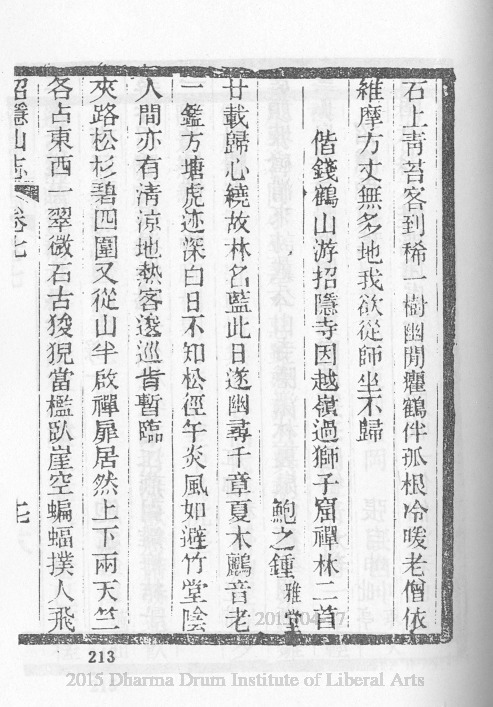 石上靑苔客到稀一樹幽閒癯鶴伴孤根冷暖老僧依
維摩方丈無多地我欲從師坐不歸
偕錢鶴山游招隱寺因越嶺過獅子窟禪林二首
鮑之鍾 雅堂
廿載歸心繞故林名藍此日遂幽尋千章夏木鸝音老
一鑑方塘虎迹深白日不知松徑午炎風如避竹堂陰
人間亦有淸涼地熱客逡巡肯暫臨
夾路松杉碧四圍又從山半啟禪扉居然上下兩天竺
各占東西一翠微石古狻猊當檻臥崖空蝙蝠撲人飛
招隱山志 卷七 七
213
2015 Dharma Drum Institute of Liberal Arts